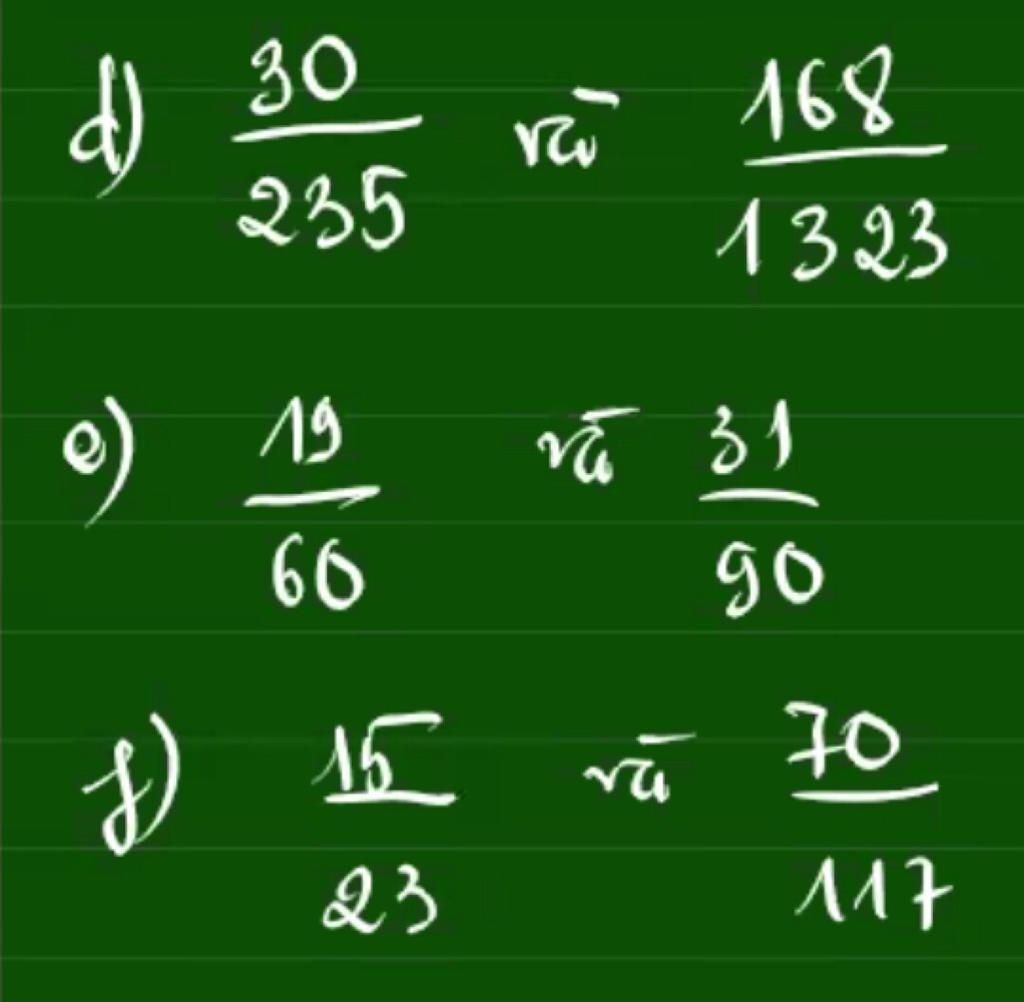 d) 30/235 và 168/1323
e) 19/60 và 31/90
f) 15/23 và 70/117